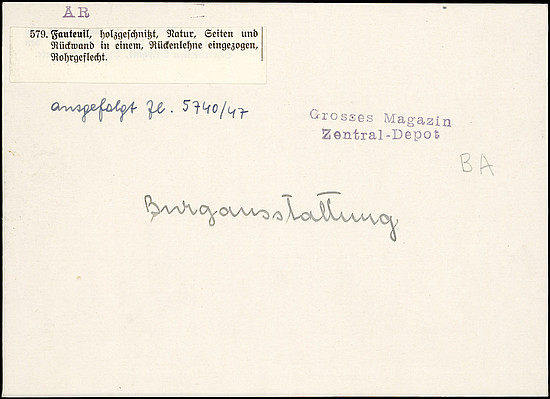 AR
579. Fauteuil, holzgeschnitzt, Natur, Seiten und
Rückwand in einem, Rückenlehne eingezogen,
Rohrgeflecht.
ausgefolgt Zl. 5740/47
Grosses Magazin
Zentral-Depot
BA
Burgausstattung